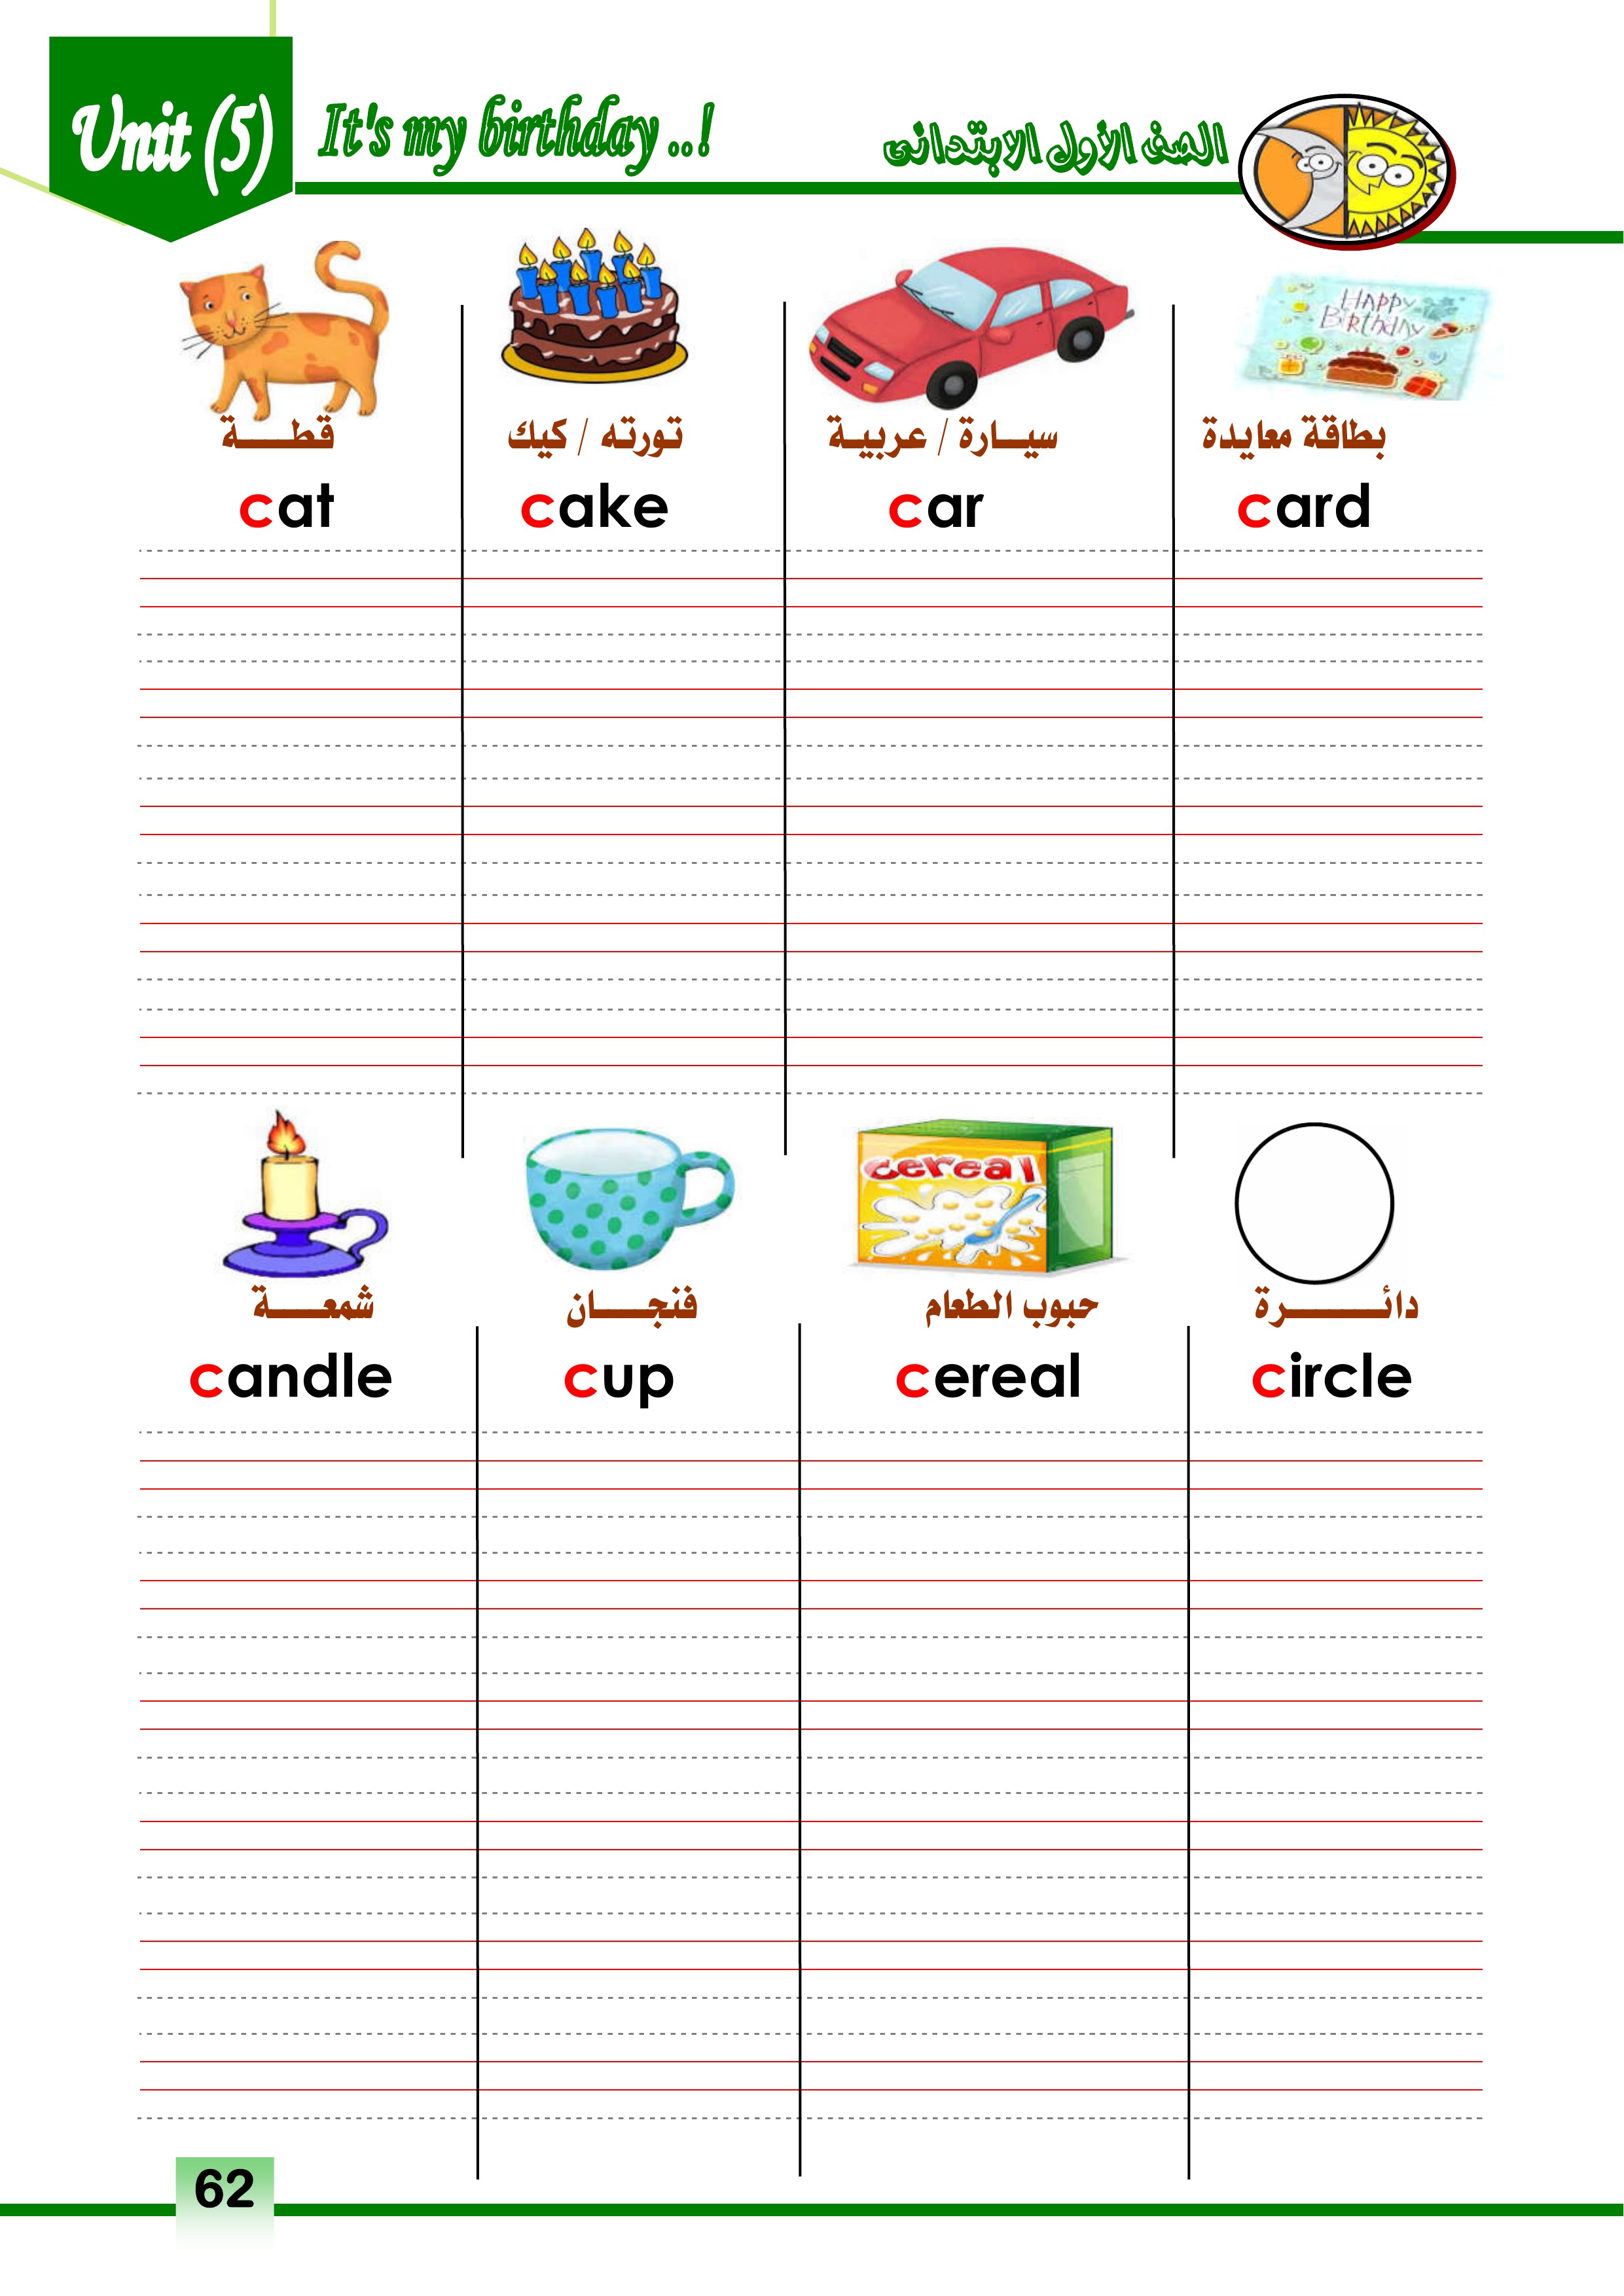 Unit (5) It's my birthday ..! الصف الأول الابتدائى
HAPPY
BIRTHDAY
قطـــــة تورته / كيك سيـــارة / عربيـة بطاقة معايدة
cat cake car card
cereal
شمعـــــة فنجـــــان حبوب الطعام دائـــــــــرة
candle cup cereal circle
62